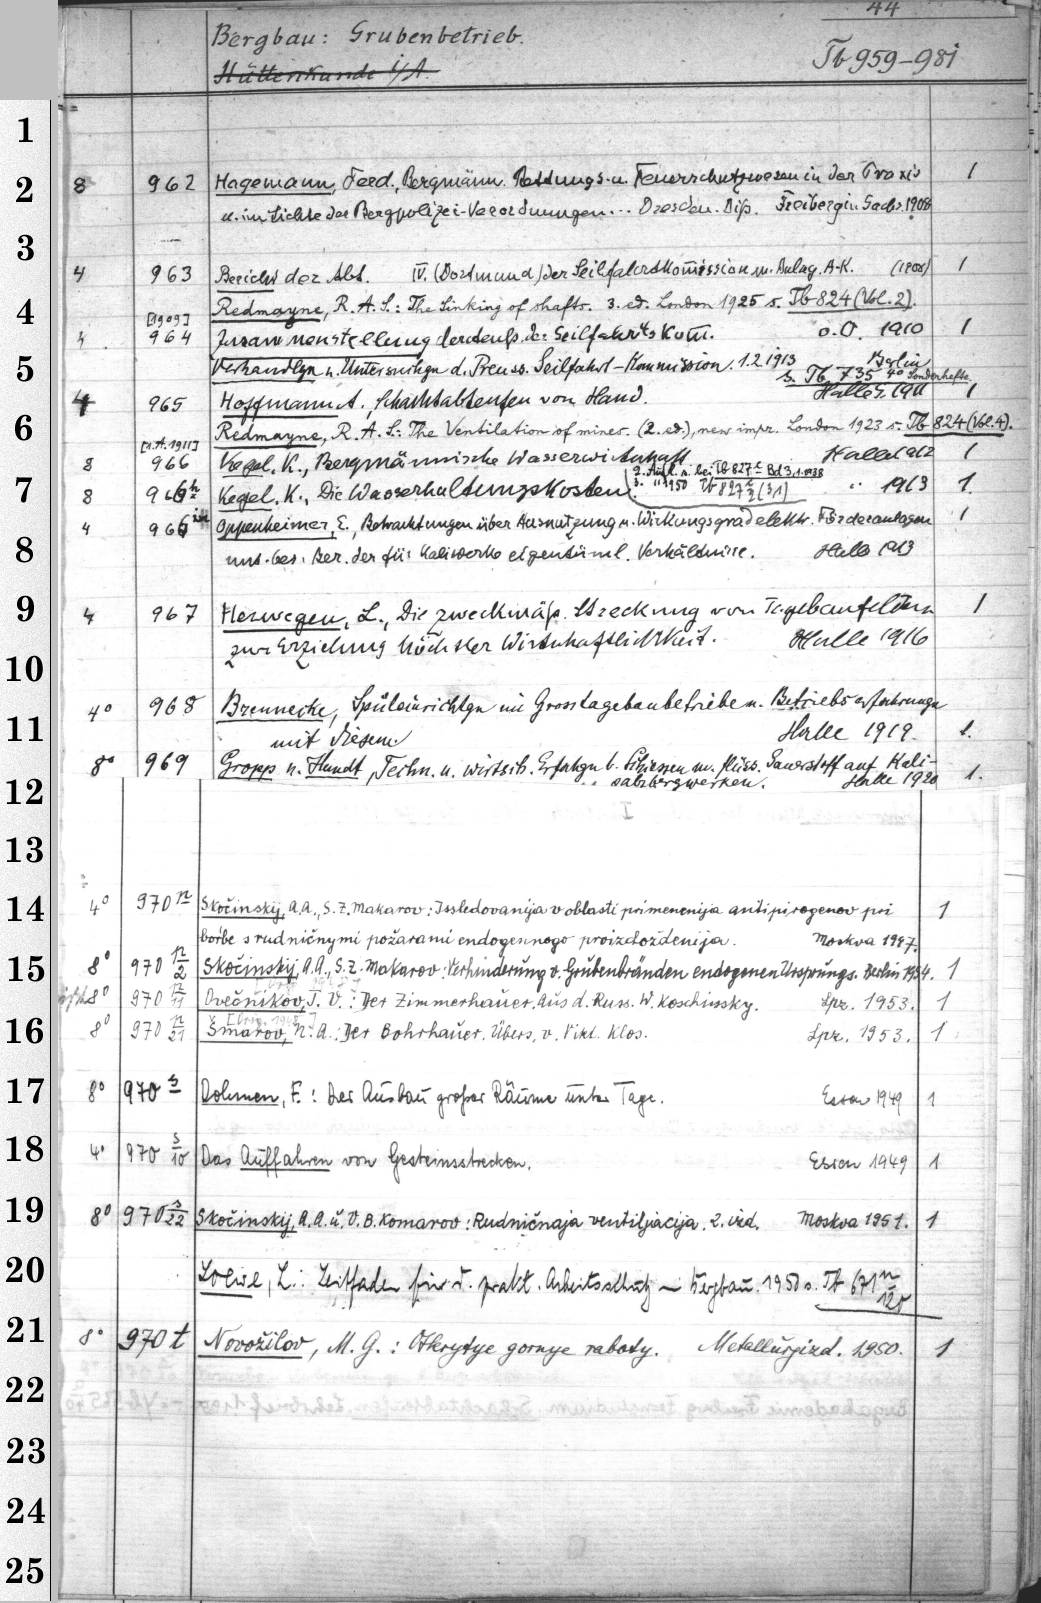 44
Bergbau: Grubenbetrieb.
Hüttenkunde i/A.
Tb 959-981
1
2
8 962 Hagemann, Ferd., Bergmänn. Rettungs- u. Feuerschutzwesen in der Praxis 1
u. im Lichte der Bergpolizei-Verordnungen... Dresden. Diss. Freiberg in Sachs. 1908
3
4 963 Bericht der Abt. IV. (Dortmund) der Seilfahrtskommission m. Anlag. A-K. (1908) 1
4
Redmayne, R. A. S.: The Sinking of shafts. 3. ed. London 1925 s. Tb 824 (Vol. 2).
[1909]
4 964 Zusammenstellung der Seilfahrts Kom. o.O. 1910 1
5
Verhandlgn u. Untersuchgn d. Preuss. Seilfahrt-Kommission. 1.2 1913 Berlin
s. Tb 735 4° Sonderhefte
4 965 Hoffmann A., Schachtabteufen von Hand. Halle S. 1911 1
6
Redmayne, R. A. S.: The Ventilation of mines. (2. ed.), new impr. London 1923 s. Tb 824 (Vol. 4).
[1.A. 1911]
8 966 Kegel, K., Bergmännische Wasserwirtschaft Halle 1912 1
7
2. Aufl. s. bei Tb 827 Bd 3,1. 1938
8 966 n Kegel, K., Die Wasserhaltungskosten 3. " 1950 Tb 827 (3,1) " 1913 1
4 966 Oppenheimer, E., Betrachtungen über Ausnutzung u. Wirkungsgrad elektr. Förderanlagen 1
8
unt. bes. Ber. der für Kaliwerke eigentüml. Verhältnisse. Halle 1913
9
4 967 Herwegen, L., Die zweckmäss. Streckung von Tagebaufeldern 1
zur Erzielung höchster Wirtschaftlichkeit. Halle 1916
10
4° 968 Brennecke, Spüleinrichtgn im Grosstagebaubetriebe u. Betriebserfahrungn
11
mit diesem Halle 1919. 1.
8° 969 Gropp u. Hundt, Techn. u. wirtsch. Erfahgn b. Schiessen m. flüss. Sauerstoff auf Kali-
12
salzbergwerken. Halle 1920 1.
13
14
4° 970 n Skočinskij, A.A., S.Z. Makarov: Issledovanija v oblasti primenenija antipirogenov pri 1
bor'be s rudničnymi požarami endogennogo proizchoždenija. Moskva 1947.
15
8° 970 n/2 Skočinskij, A.A., S.Z. Makarov: Verhinderung v. Grubenbränden endogenen Ursprungs. Berlin 1954. 1
8° 970 n/11 Ovečnikov, I. V.: Der Zimmerhauer. Aus d. Russ. W. Koschinsky. Lpz. 1953. 1
16
8° 970 n/21 Šmarov, N. A.: Der Bohrhauer. Übers. v. Vikt. Klos. Lpz. 1953. 1
17
8° 970 s Dohmen, F.: Der Ausbau großer Räume unter Tage. Essen 1949 1
18
4° 970 s/10 Das Auffahren von Gesteinsstrecken. Essen 1949 1
19
8° 970 s/22 Skočinskij, A.A. u. V.B. Komarov: Rudničnaja ventiljacija. 2. izd. Moskva 1951. 1
20
Loewe, L.: Leitfaden für d. prakt. Arbeitsschutz – Bergbau. 1950 s. Tb 671 n/120
21
8° 970 t Novožilov, M. G.: Otkrytye gornye raboty. Metallurgizd. 1950. 1
22
23
24
25